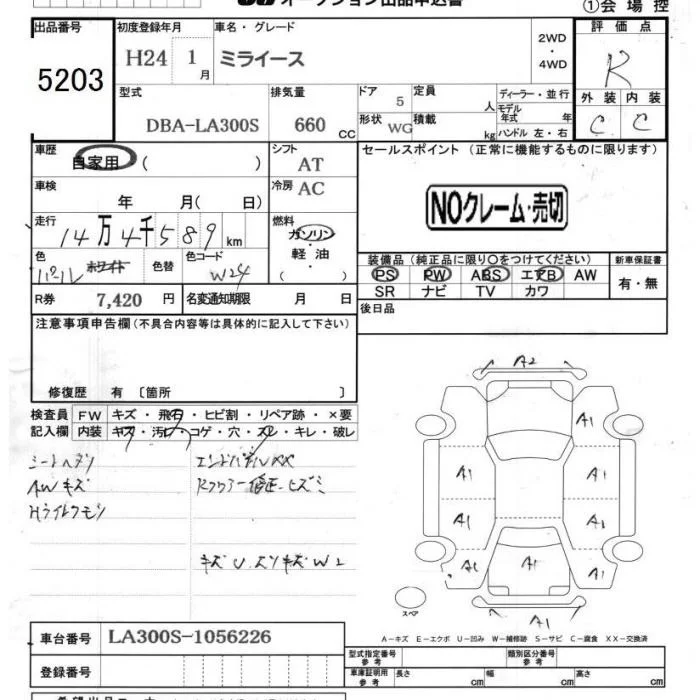 オークション出品申込書
①会場控
出品番号
5203
初度登録年月
H24 1月
車名・グレード
ミライース
2WD
・
4WD
評価点
R
外装 内装
C C
型式
DBA-LA300S
排気量
660 CC
ドア 5
形状 WG
定員 人
積載 kg
ディーラー・並行
モデル年式 年
ハンドル 左・右
車歴
自家用 ( )
シフト
AT
車検
年 月( 日)
冷房 AC
セールスポイント (正常に機能するものに限ります)
NOクレーム・売切
走行
14万4千589km
燃料
ガソリン
・
軽油
・
( )
色
パール ホワイト
色替
色コード
W24
装備品 (純正品に限り○をつけてください)
PS PW ABS エアB AW
SR ナビ TV カワ
新車保証書
有・無
R券 7,420 円
名変通知期限 月 日
後日品
注意事項申告欄 (不具合内容等は具体的に記入して下さい)
修復歴 有 〔箇所 〕
検査員
記入欄
FW キズ・飛石・ヒビ割・リペア跡・×要
内装 キズ・汚レ・コゲ・穴・スレ・キレ・破レ
シートヘタリ
AWキズ
Hライトクモリ
エンドパネルXX
Rフロアー修正ヒズミ
キズU スリキズ W2
A2
A1
A1 A1
A1 A1
A1 A1 A1
A1
スペア
A－キズ E－エクボ U－凹み W－補修跡 S－サビ C－腐食 XX－交換済
車台番号 LA300S-1056226
登録番号
型式指定番号
参考
類別区分番号
参考
車庫証明用
参考
長さ cm 幅 cm 高さ cm